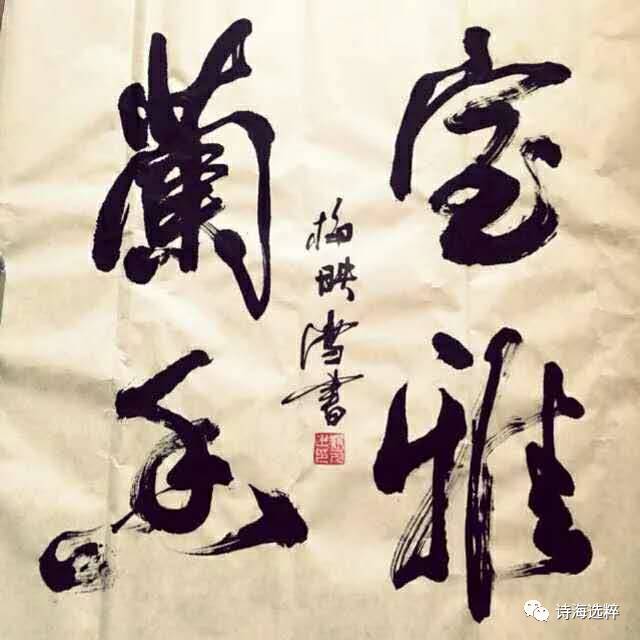 室雅
蘭香
梅映雪書
诗海选粹